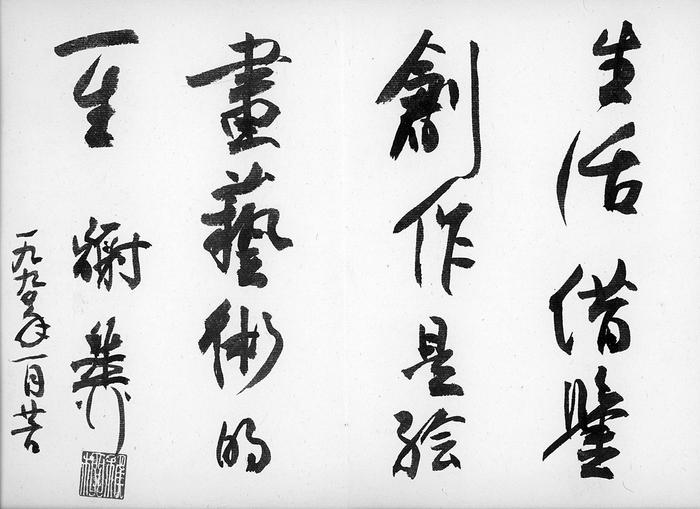 生活借鑒
創作是絵
畫藝術的
一生
一九九〇年一月廿日